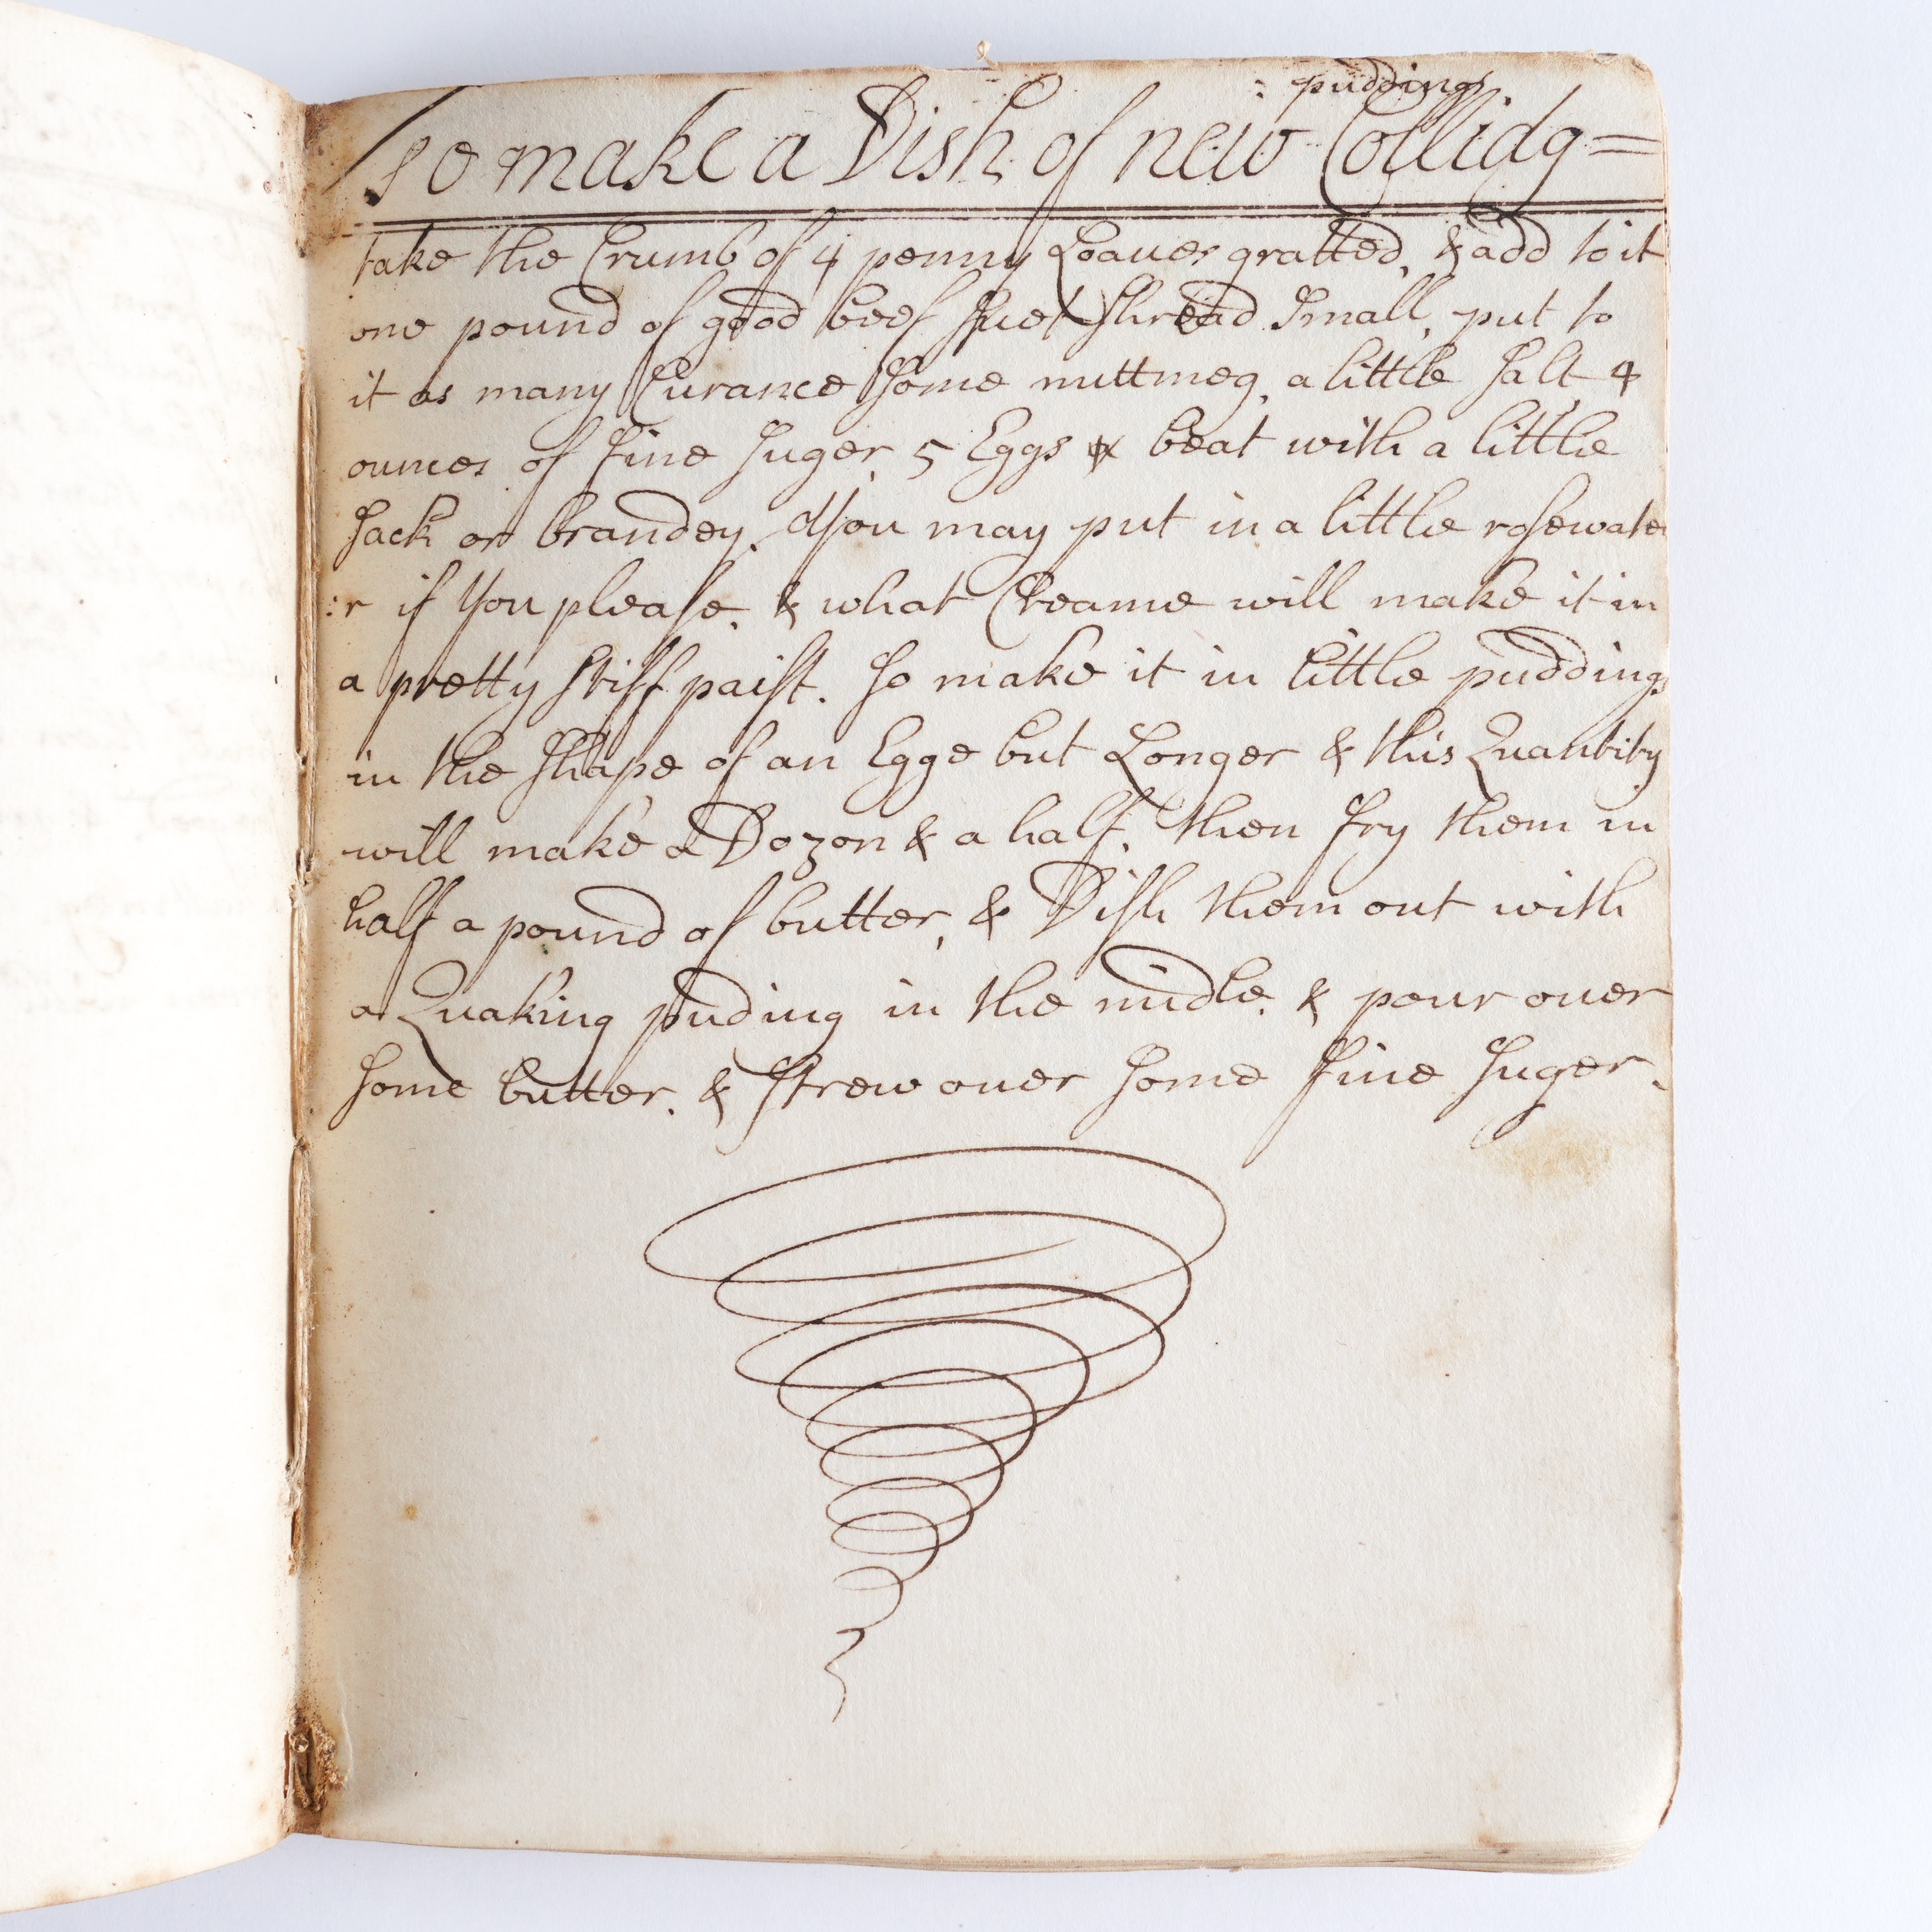 : puddings
To make a Dish of new Collidg =
take the Crumb of 4 penny Loaues gratted, & add to it
one pound of good beef Suet Shread Small, put to
it as many Curance Some nuttmeg, a little Salt 4
ounces of fine Suger, 5 Eggs beat with a little
Sack or brandey, You may put in a little rosewate
:r if You please, & what Creame will make it in
a pretty stiff paist. So make it in little puddings
in the Shape of an Egge but Longer & this Quantity
will make a Dozon & a half, then fry them in
half a pound of butter, & Dish them out with
a Quaking puding in the midle, & pour ouer
Some butter, & Strew ouer Some fine Suger.